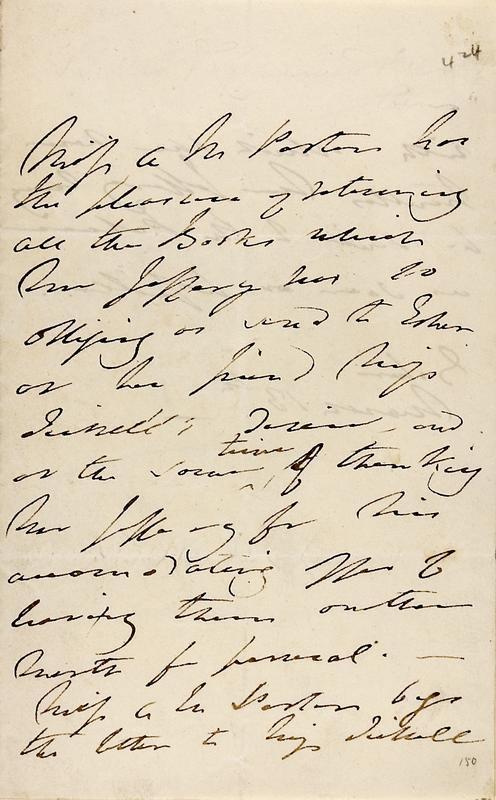 424
Miss A M Porter has
the pleasure of returning
all the Books which
Mr Jeffery was so
obliging as send to Esher
at her friend Miss
Tickell's desire, and
at the same time of thanking
Mr Jeffery for his
accomodating offer of
having them another
month for perusal. —
Miss A M Porter begs
the letter to Miss Tickell
150